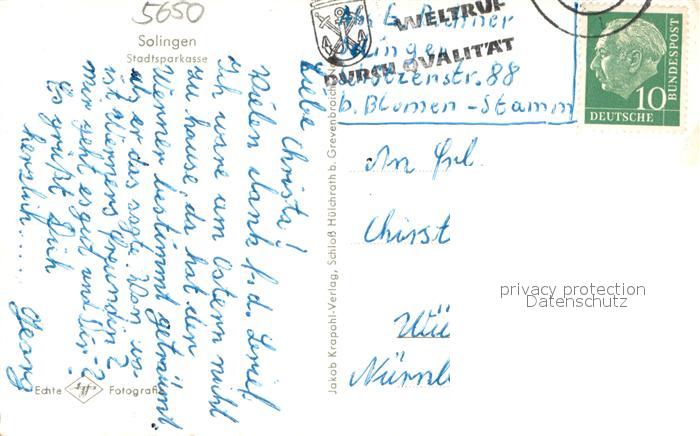 5650
Solingen
Stadtsparkasse
Liebe Christa!
Vielen Dank f. d. Brief.
Ich ware am Ostern nicht
zu hause, da hat den
Werner bestimmt geträumt
als er das sagte. Wer is
ist Werners Freundin?
mir geht es gut und Dir?
Es grüßt Dich
herzlich.....
Georg
Echte Fotografie
Jakob Krapohl-Verlag, Schloß Hülchrath b. Grevenbroich
WELTRUF
DURCH QUALITÄT
Solingen
str. 88
b. Blumen-Stamm
DEUTSCHE
BUNDESPOST
10
An Frl.
Christ
Nürnb
privacy protection
Datenschutz